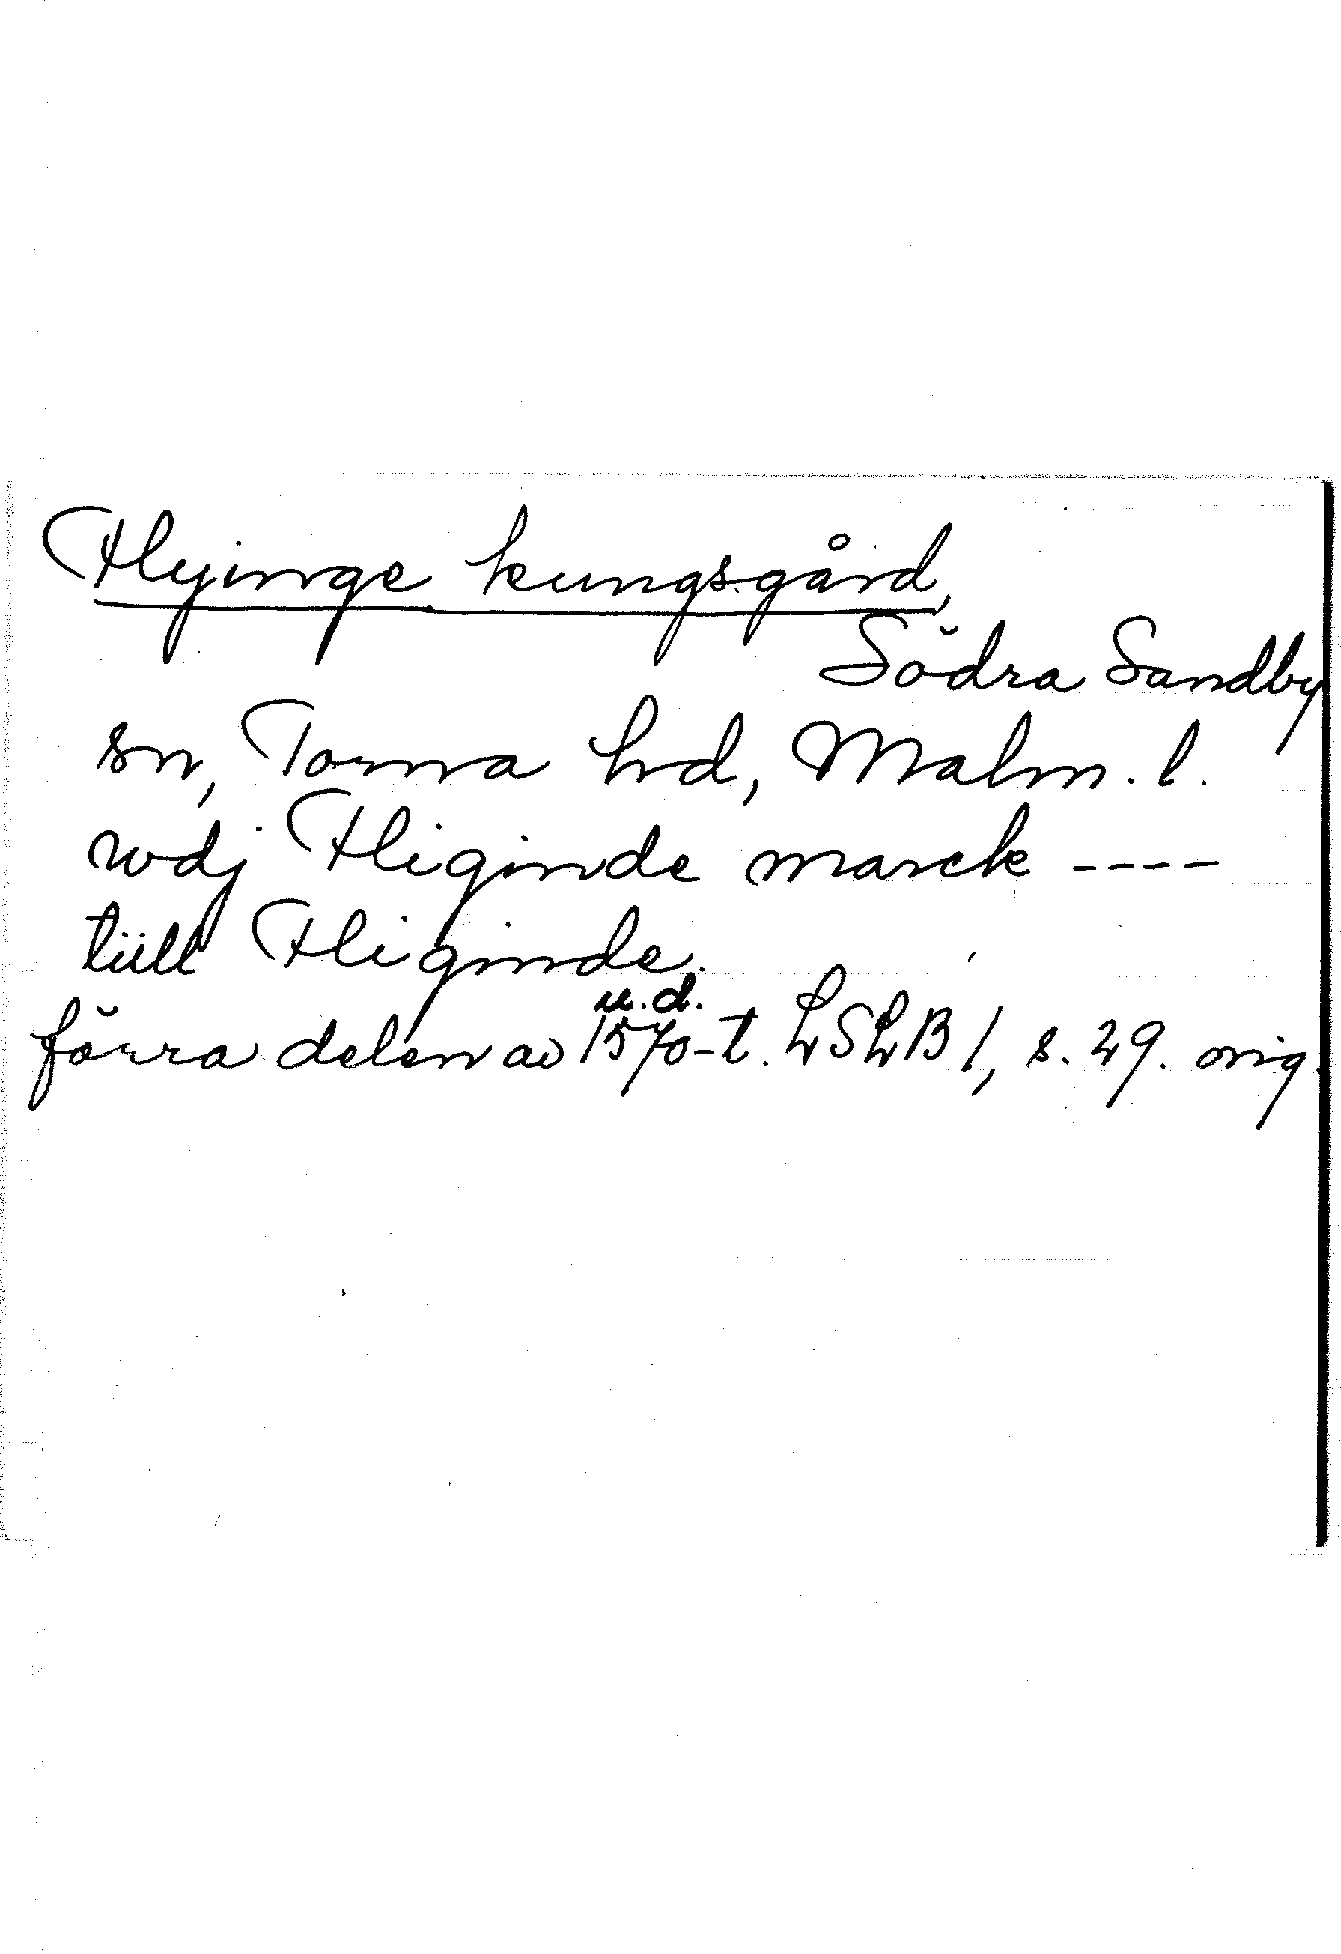 Flyinge kungsgård,
Södra Sandby
sn, Torna hd, Malm. l.
wdj Fliginde marck ----
tüll Fliginde.
u.d.
förra delen av 1570-t. LSLB 1, s. 29. orig.